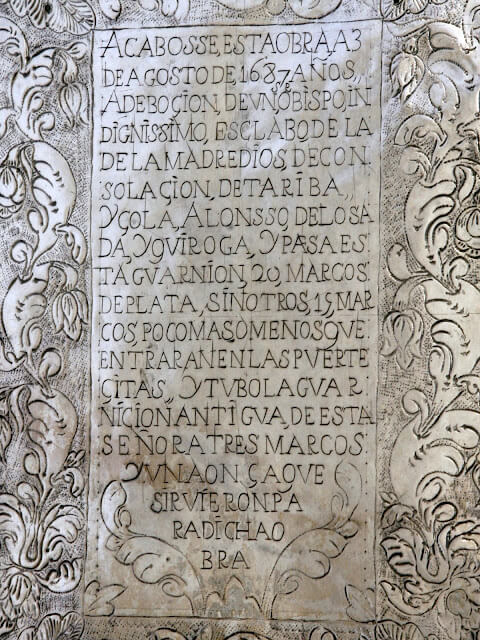 ACABOSSE, ESTAOBRA, A3
DE AGOSTO DE 1687 AÑOS,,
ADEBOÇION, DEVNOBISPO, IN
DIGNISSIMO, ESCLABO, DE LA
DE LA MADRE DIOS, DE CON
SOLAÇION, DE TARIBA,,
YCOLA, ALONSSO, DE LOSA
DA, YQVIROGA, YPÆSA ES
TA GVARNION, 20, MARCOS
DE PLATA, SINOTROS, 15, MAR
COS, POCO MAS O MENOS QVE
ENTRARAN EN LAS PVERTE
ÇITAS,, YTVBO LA GVAR
NICION ANTIGVA, DE ESTA
SEÑORA TRES MARCOS
YVNA ONÇA QVE
SIRVIERON PA
RA DICHA O
BRA